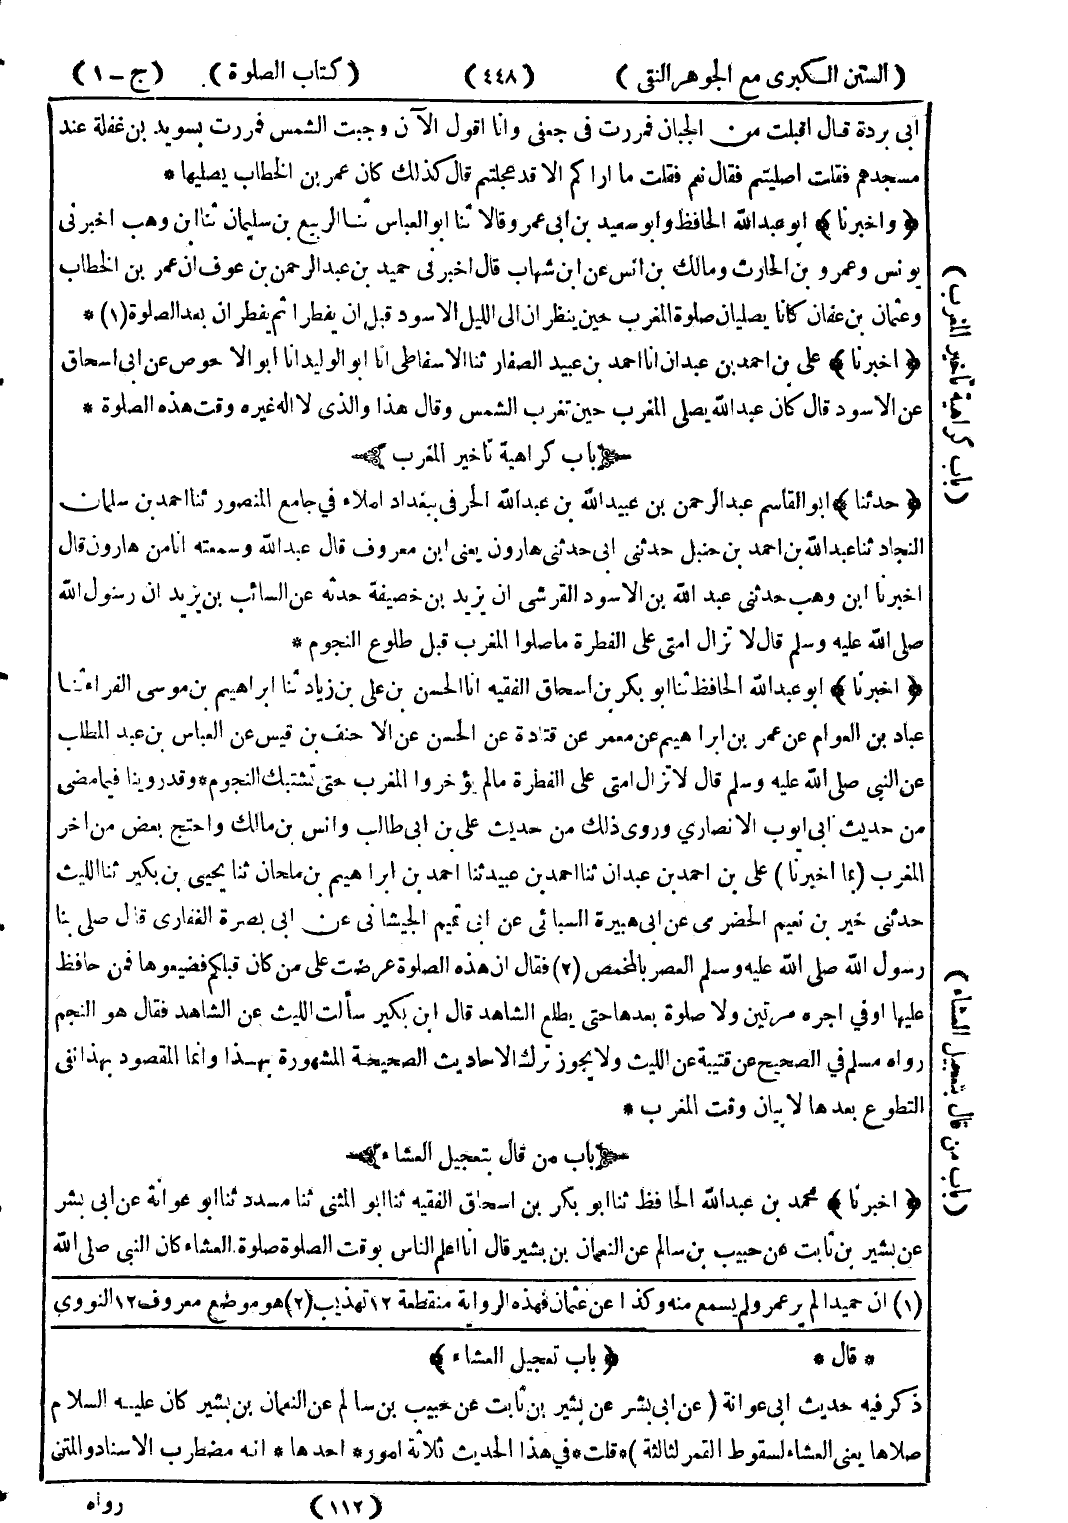 ( السنن الكبرى مع الجوهر النقى ) (٤٤٨) ( كتاب الصلوة ). (ج - ١)
ابى بردة قال اقبلت من الجبان فمررت فى جعفى وانا اقول الآن وجبت الشمس فمررت بسويد بن غفلة عند
مسجدهم فقلت أصليتم فقال نعم فقلت ما اراكم الا قد عجلتم قال كذلك كان عمر بن الخطاب يصليها *
﴿ واخبرنا ﴾ ابو عبدالله الحافظ وابو سعيد بن ابى عمرو قالا ثنا ابو العباس ثنا الربيع بن سليمان ثنا ابن وهب اخبرنى
يونس وعمرو بن الحارث ومالك بن انس عن ابن شهاب قال اخبرنى حميد بن عبدالرحمن بن عوف ان عمر بن الخطاب
وعثمان بن عفان كانا يصليان صلوة المغرب حين ينظران الى الليل الاسود قبل ان يفطرا ثم يفطران بعد الصلوة (١) *
﴿ اخبرنا ﴾ على بن احمد بن عبدان انا احمد بن عبيد الصفار ثنا الاسفاطى انا ابو الوليد انا ابو الاحوص عن ابى اسحاق
عن الاسود قال كان عبدالله يصلى المغرب حين تغرب الشمس وقال هذا والذى لا اله غيره وقت هذه الصلوة *
باب كراهية تأخير المغرب
﴿ حدثنا ﴾ ابو القاسم عبدالرحمن بن عبيدالله بن عبدالله الحرفى ببغداد املاء في جامع المنصور ثنا احمد بن سلمان
النجاد ثنا عبدالله بن احمد بن حنبل حدثنى ابى حدثنى هارون يعنى ابن معروف قال عبدالله وسمعته انا من هارون قال
اخبرنا ابن وهب حدثنى عبد الله بن الاسود القرشى ان يزيد بن خصيفة حدثه عن السائب بن يزيد ان رسول الله
صلى الله عليه وسلم قال لا تزال امتى على الفطرة ما صلوا المغرب قبل طلوع النجوم *
﴿ اخبرنا ﴾ ابو عبدالله الحافظ ثنا ابو بكر بن اسحاق الفقيه انا الحسن بن على بن زياد ثنا ابراهيم بن موسى الفراء ثنا
عباد بن العوام عن عمر بن ابراهيم عن معمر عن قتادة عن الحسن عن الاحنف بن قيس عن العباس بن عبد المطلب
عن النبي صلى الله عليه وسلم قال لا تزال امتى على الفطرة مالم يؤخروا المغرب حتى تشتبك النجوم * وقد روينا فيما مضى
من حديث ابى ايوب الانصاري وروى ذلك من حديث على بن ابى طالب وانس بن مالك واحتج بعض من اخر
المغرب (بما اخبرنا) على بن احمد بن عبدان ثنا احمد بن عبيد ثنا احمد بن ابراهيم بن ملحان ثنا يحيى بن بكير ثنا الليث
حدثنى خير بن نعيم الحضرمى عن ابى هبيرة السبائى عن ابى تميم الجيشانى عن ابى بصرة الغفارى قال صلى بنا
رسول الله صلى الله عليه وسلم العصر بالمخمص (٢) فقال ان هذه الصلوة عرضت على من كان قبلكم فضيعوها فمن حافظ
عليها اوفي اجره مرتين ولا صلوة بعدها حتى يطلع الشاهد قال ابن بكير سألت الليث عن الشاهد فقال هو النجم
رواه مسلم في الصحيح عن قتيبة عن الليث ولا يجوز ترك الاحاديث الصحيحة المشهورة بهذا وانما المقصود بهذا نفى
التطوع بعدها لا بيان وقت المغرب *
باب من قال بتعجيل العشاء
﴿ اخبرنا ﴾ محمد بن عبدالله الحافظ ثنا ابو بكر بن اسحاق الفقيه ثنا ابو المثنى ثنا مسدد ثنا ابو عوانة عن ابى بشر
عن بشير بن ثابت عن حبيب بن سالم عن النعمان بن بشير قال انا اعلم الناس بوقت الصلوة صلوة العشاء كان النبي صلى الله
(١) ان حميدا لم ير عمر ولم يسمع منه وكذا عن عثمان فهذه الرواية منقطعة ١٢ تهذيب (٢) هو موضع معروف ١٢ النووي
* قال * ﴿ باب تعجيل العشاء ﴾
ذكر فيه حديث ابى عوانة ( عن ابى بشر عن بشير بن ثابت عن حبيب بن سالم عن النعمان بن بشير كان عليه السلام
صلاها يعنى العشاء لسقوط القمر لثالثة ) * قلت * في هذا الحديث ثلاثة امور * احدها * انه مضطرب الاسناد والمتن
(١١٢) رواه
(باب كراهية تأخير المغرب)
(باب من قال بتعجيل العشاء)